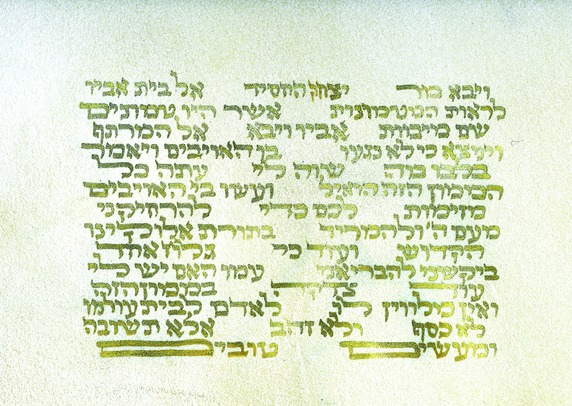 ויבא מור יצחק החסיד אל בית אביו
לראות המטמוניות אשר היו טמונים
שם מימות אביו ויבא אל המרתף
וימצא כי לא נגעו בן האויבים ויאמר
בלבו מה שוה לי עתה כל
הממון הזה הואיל ועשו בי האויבים
מזימות לכם כדי להרחיקני
מעם ה' ולהמריד בתורת אלוקינו
הקדוש ועוד כי גלוח אחד
ביקשני להברי אני עמו האם יש לי
עוד צדקה בממון הזה
ואין מלווין לו לאדם לבית עולמו
לא כסף ולא זהב אלא תשובה
ומעשים טובים